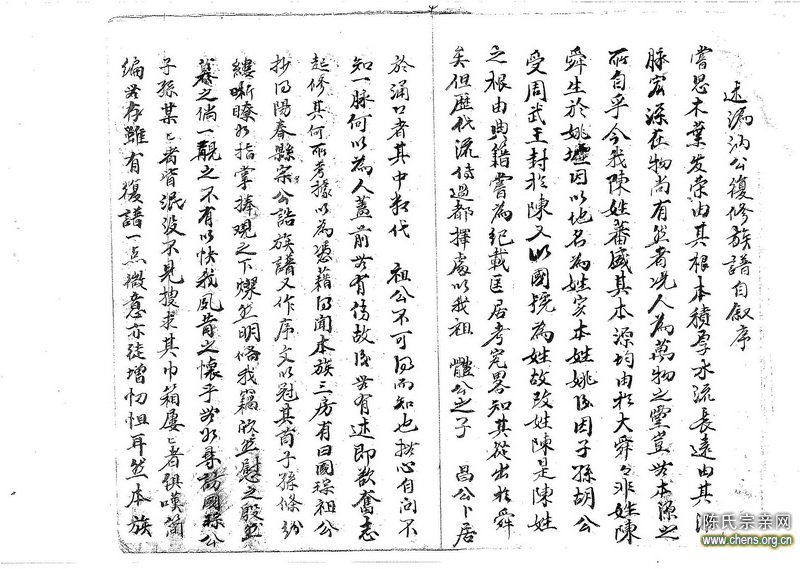 述滿汭公復修族譜自叙序
嘗思木葉发荣由其根本積厚水流長遠由其派
脉宏源在物尚有然者况人為萬物之靈豈無本源之
所自乎今我陳姓蕃盛其本源均由於大舜々非姓陳
舜生於姚墟因以地名為姓实本姓姚后因子孫胡公
受周武王封於陳又以國號為姓故改姓陳是陳姓
之根由典籍嘗為紀載臣居考究畧知其從出於舜
矣但歴代流傳过都擇處以我祖 公之子 昌公卜居
於涌口者其中数代 祖公不可得而知也捫心自问不
知一脉何以為人蓋前無有傳故后無有述即欲奮志
起修其何所考據以為憑藉得闻本族三房有曰國琛祖公
抄得陽春縣宗公誥族譜又作序文以冠其首子孫條分
縷晰瞭如指掌捧观之下燦然明倫我竊欣然慰之殷然
慕之倘一覩之不有以快我夙昔之懷乎無如尋訪國琛公
子孫某々者皆泯没不見搜求其巾箱屢々者俱嘆簡
编無存雖有復譜一点微意亦徒增忉怛耳然本族
陈氏宗亲网
www.chens.org.cn